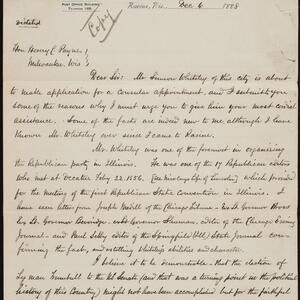 POST OFFICE BUILDING
TELEPHONE 199.
Dictated
Copy
Racine, Wis. Dec 6 1888
Hon Henry C. Payne,
Milwaukee, Wis
Dear Sir: Mr Sumner Whiteley of this city is about
to make application for a consular appointment, and I submit to you
some of the reasons why I must urge you to give him your most cordial
assistance. Some of the facts are indeed new to me although I have
known Mr. Whiteley ever since I came to Racine.
Mr. Whiteley was one of the foremost in organizing
the Republican party in Illinois. He was one of the 17 Republican editors
who met at Decatur Feby 22, 1856, (see history of Lincoln) which provided
for the meeting of the first Republican State Convention in Illinois. I
have seen letters from Joseph Medill of the Chicago Tribune - Ex Lt. Governor Bross
Ex Lt. Governor Beveridge - Ex Governor Shuman, editor of the Chicago Evening
Journal - and Paul Selby editor of the Springfield (Ill) State Journal con-
firming the fact, and extolling Whiteleys abilities and character.
I believe it to be demonstrable that the election of
Lyman Trumbull to the US Senate (and that was a turning point in the political
history of this Country) might not have been accomplished but for the faithful